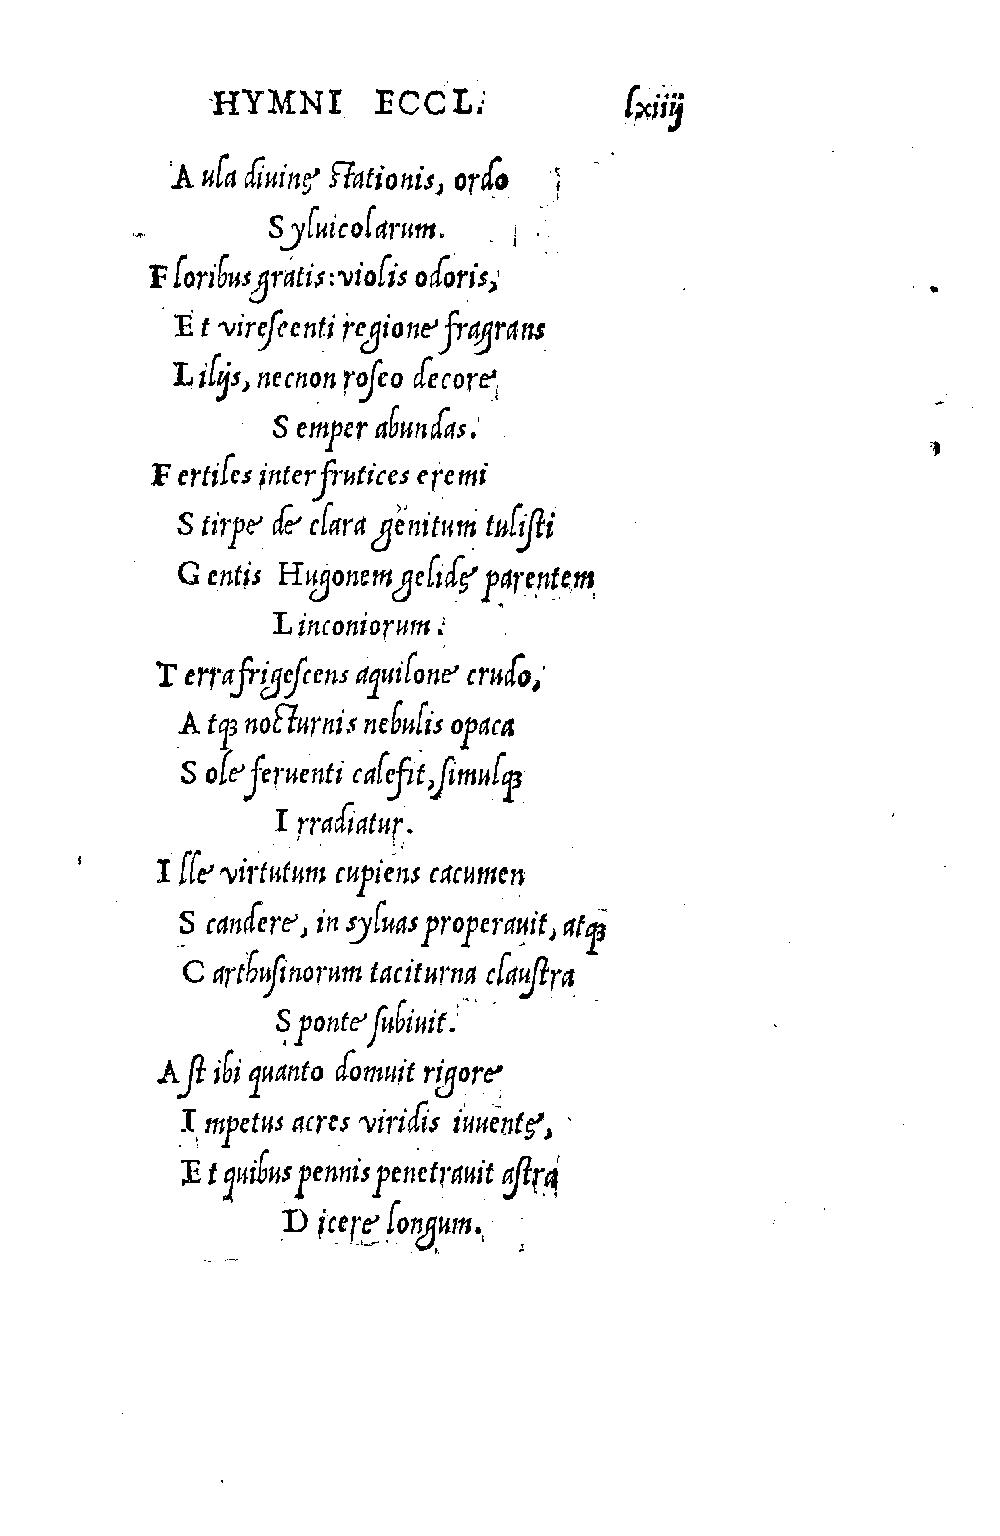 HYMNI ECCL. lxiiij
Aula diuinę stationis, ordo
Syluicolarum.
Floribus gratis: violis odoris,
Et virescenti regione fragrans
Lilijs, necnon roseo decore
Semper abundas.
Fertiles inter frutices eremi
Stirpe de clara genitum tulisti
Gentis Hugonem gelidę parentem
Linconiorum.
Terra frigescens aquilone crudo,
Atq; nocturnis nebulis opaca
Sole feruenti calefit, simulq;
Irradiatur.
Ille virtutum cupiens cacumen
Scandere, in syluas properauit, atq;
Carthusinorum taciturna claustra
Sponte subiuit.
Ast ibi quanto domuit rigore
Impetus acres viridis iuuentę,
Et quibus pennis penetrauit astra
Dicere longum.